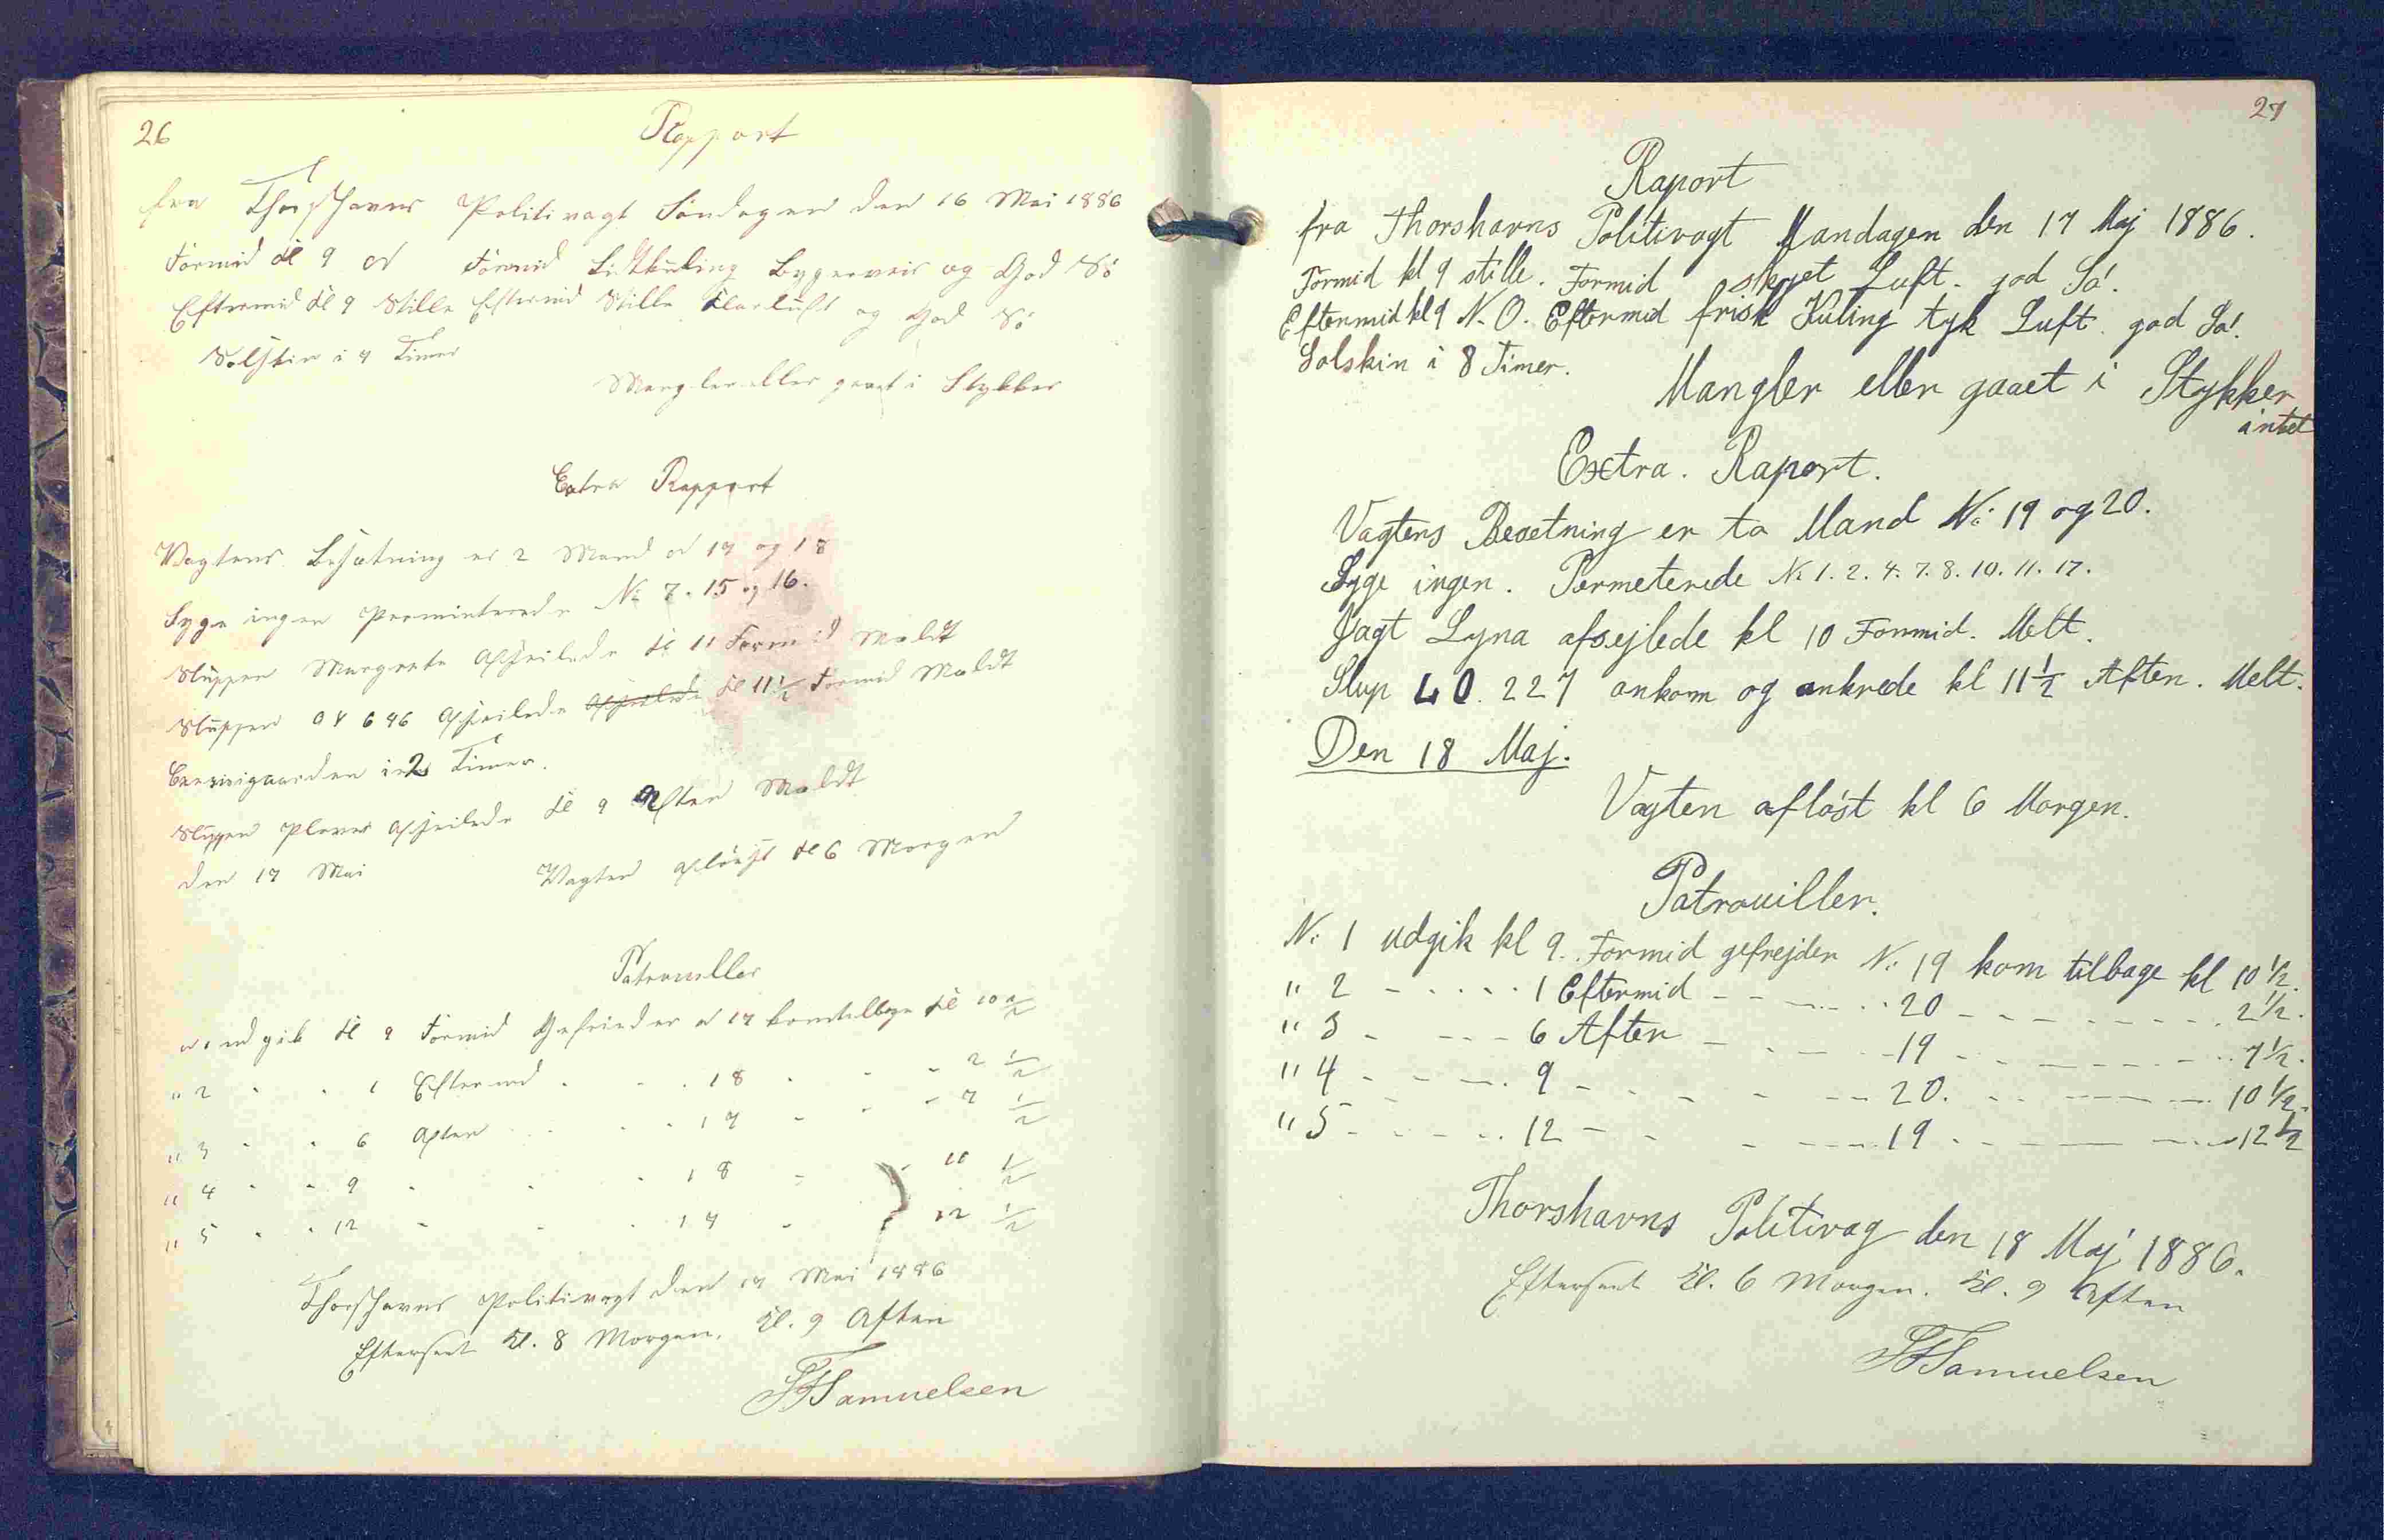 26
Rapport
fra Thorshavns Politivagt Söndagen den 16 Mai 1886
Formid kl 9 N Formid Let Kuling Bygerveir og God Sö
Eftermid kl 9 Stille Eftermid Stille Klarluft og God Sö
Solskin i 4 Timer
Mangler eller gaaet i Stykker
Extra Rapport
Vagtens Besætning er 2 Mand N 17 og 18
Syge ingen Permiterede № 7. 15 og 16.
Sluppen Margrete Afseilede kl 11 Formid Meldt
Sluppen 646 Afseilede Afseilede kl 11 1/2 Formid Meldt
i 2 Timer.
Sluppen Plover Afseilede kl 9 Aften Meldt
den 17 Mai Vagten aflöst kl 6 Morgen
Patrouiller
N 1 udgik kl 9 Formid Gefreider N 17 kom tilbage kl 10 1/2
" 2 - - 1 Eftermid - - - 18 - - - 2 1/2
" 3 - - 6 Aften - - - 17 - - - 7 1/2
" 4 - - 9 - - - 18 - - 10 1/2
" 5 - - 12 - - - 17 - 12 1/2
Thorshavns Politivagt den 17 Mai 1886
Efterseet Kl. 8 Morgen. Kl. 9 Aften
Samuelsen
27
Raport
fra Thorshavns Politivagt Mandagen den 17 Maj 1886.
Formid kl 9 stille. Formid skyet Luft. god Sö.
Eftermid kl 9 N.O. Eftermid frisk Kuling tyk Luft. god Sö.
Solskin i 8 Timer.
Mangler eller gaaet i Stykker
intet
Extra. Raport.
Vagtens Besetning er to Mand № 19 og 20.
Syge ingen. Permeterede № 1. 2. 4. 7. 8. 10. 11. 17.
Jagt Lyna afsejlede kl 10 Formid. Melt.
Slup L O. 227 ankom og ankrede kl 11 1/2 Aften. Melt.
Den 18 Maj.
Vagten afløst kl 6 Morgen.
Patrouiller.
N: 1 udgik kl 9. Formid gefrejder N: 19 kom tilbage kl 10 1/2.
" 2 - - - - 1 Eftermid - - - - 20 - - - - 2 1/2.
" 3 - - - - 6 Aften - - - - 19 - - - - 7 1/2.
" 4 - - - - 9 - - - - 20. - - - - 10 1/2.
" 5 - - - - 12 - - - - 19 - - - - 12 1/2
Thorshavns Politivag den 18 Maj 1886.
Efterseet Kl. 6 Morgen. Kl. 9 Aften
Samuelsen